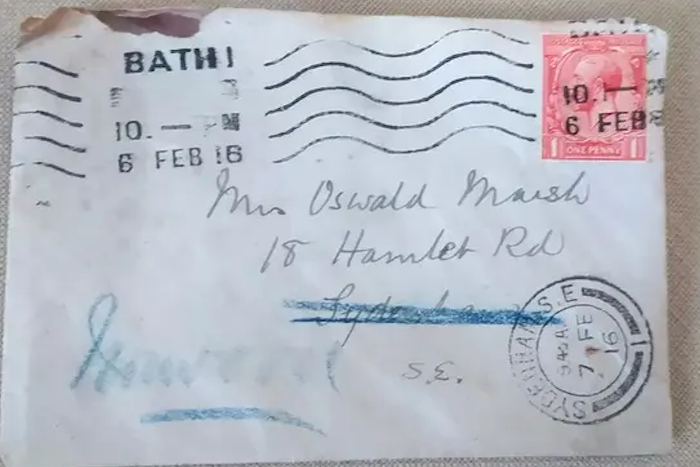 BATH
10. — PM
6 FEB 16
10.1 —
6 FEB
1 ONE PENNY 1
Mrs Oswald Marsh
18 Hamlet Rd
Sydenham
S.E.
SYDENHAM S.E
9.45 A
7 FE
16